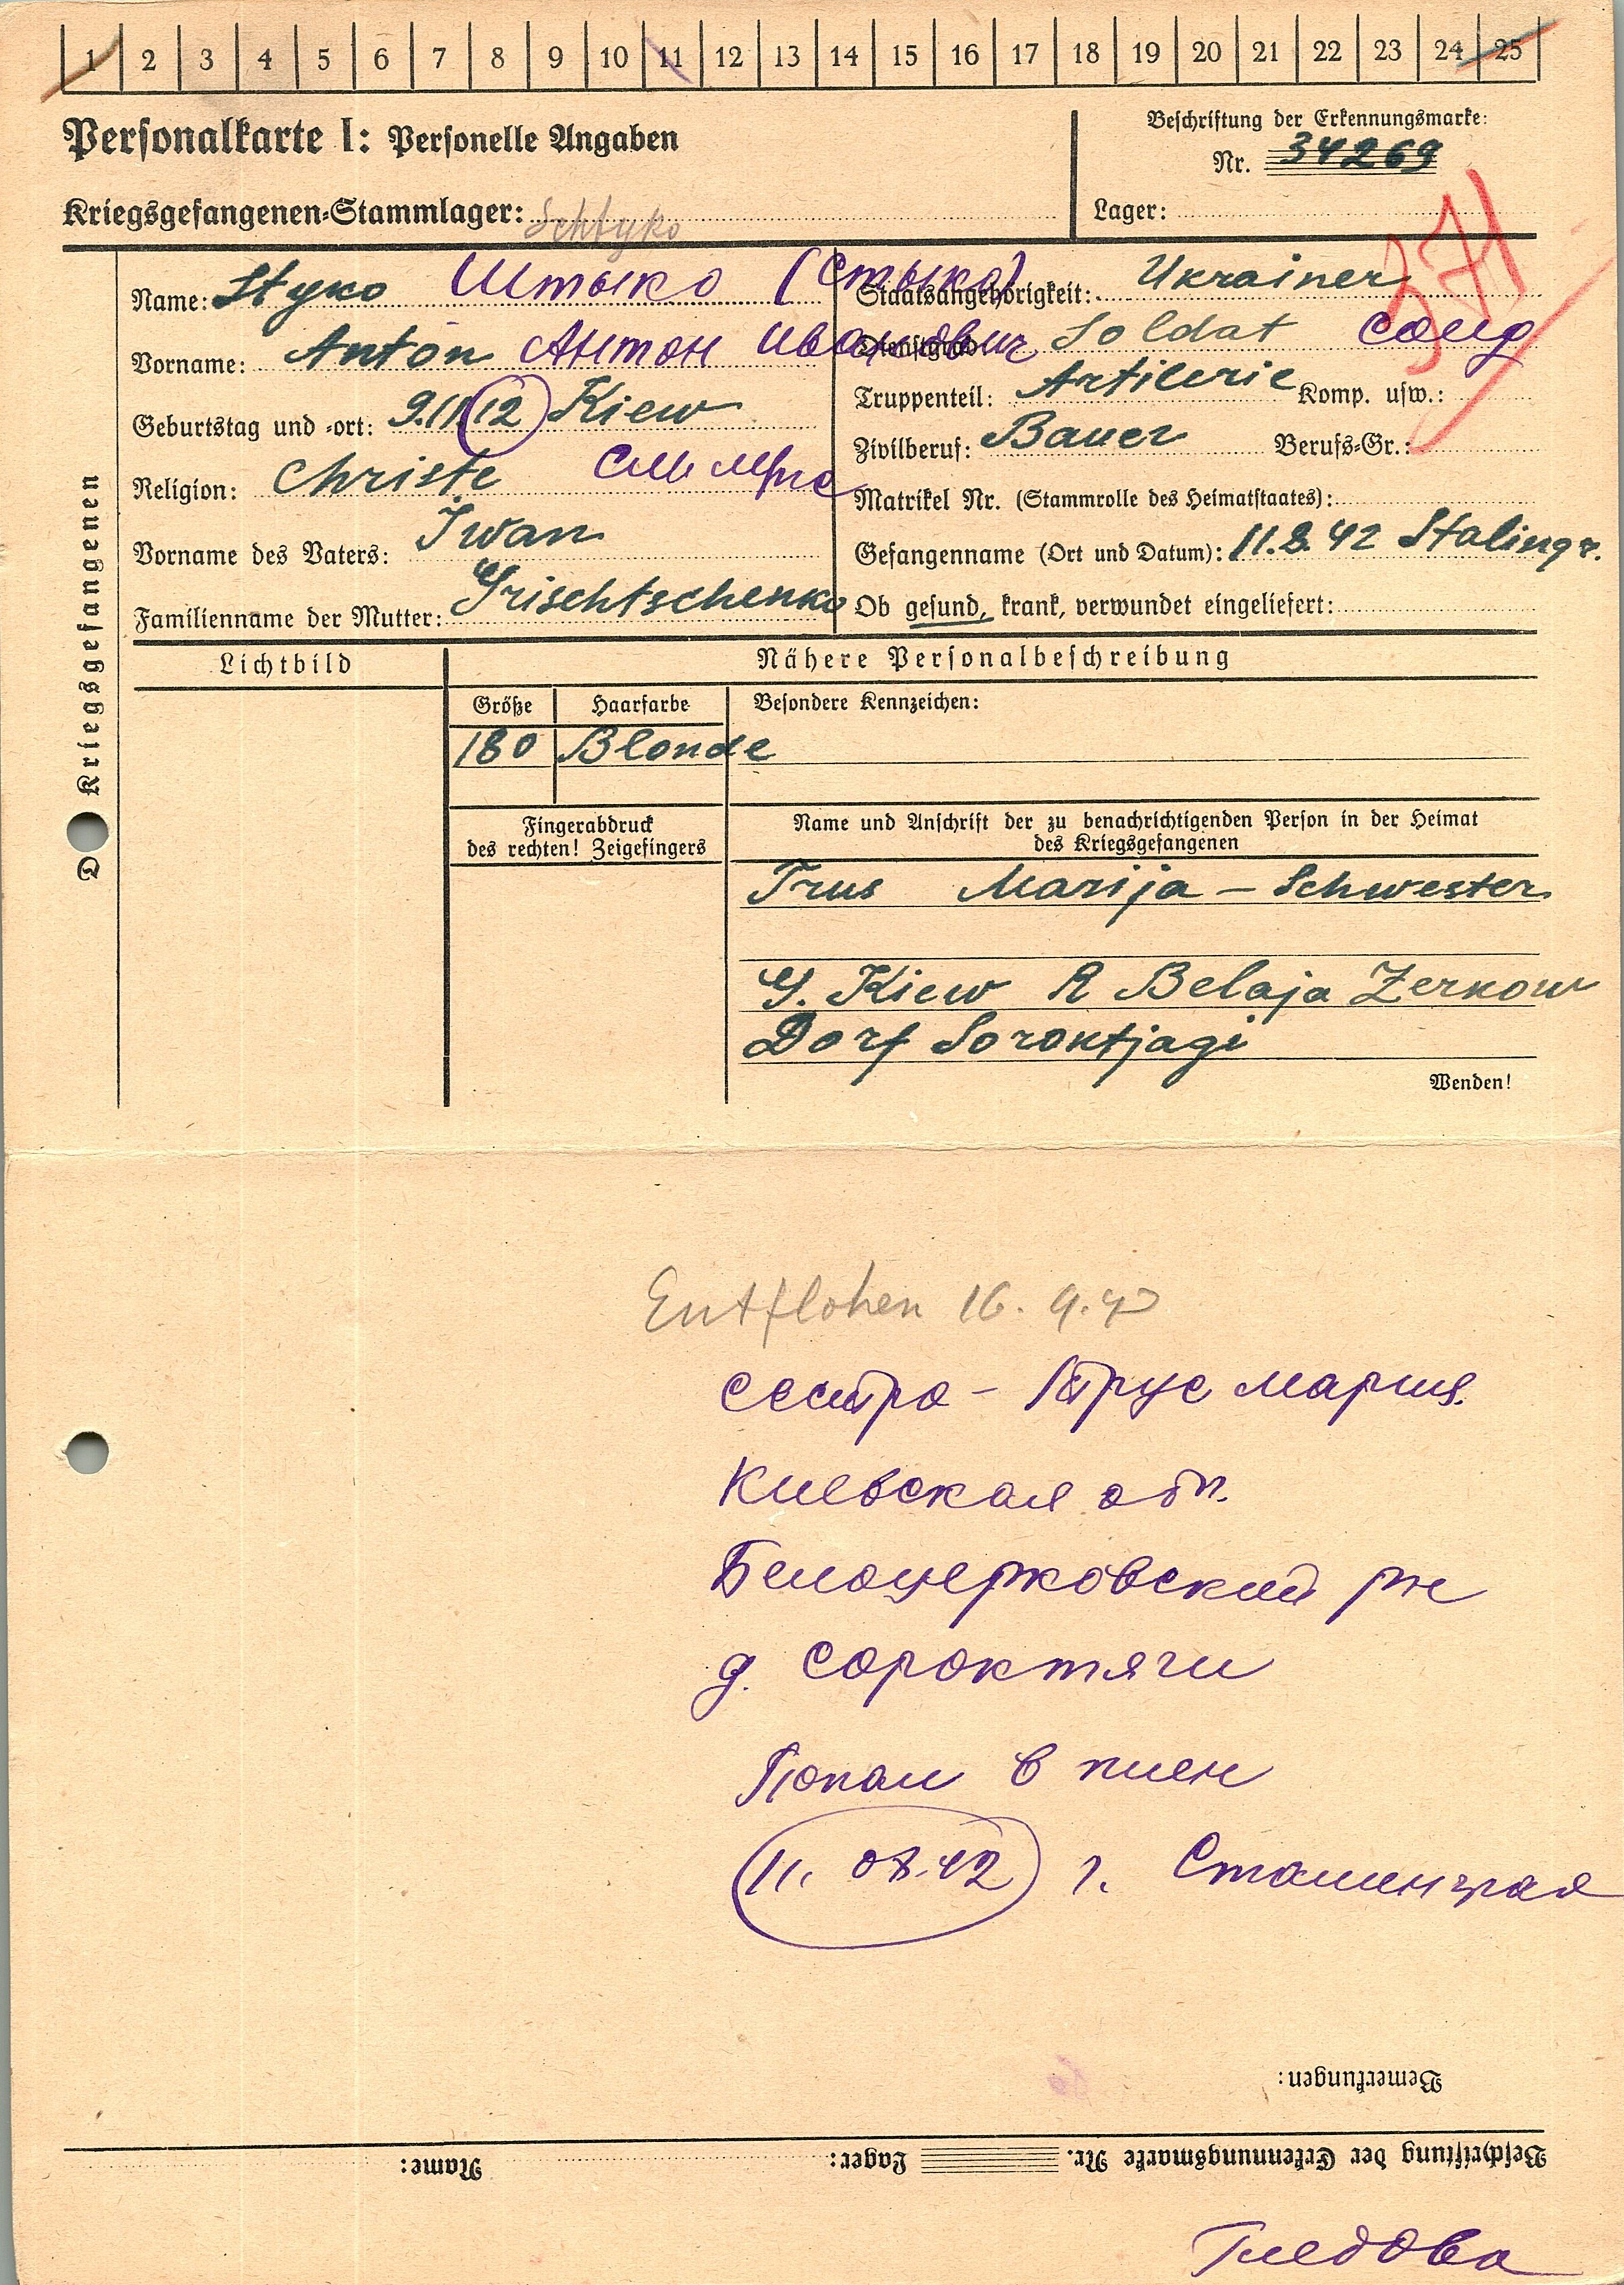 1 2 3 4 5 6 7 8 9 10 11 12 13 14 15 16 17 18 19 20 21 22 23 24 25
Personalkarte I: Personelle Angaben
Beschriftung der Erkennungsmarke:
Nr. 34269
Kriegsgefangenen-Stammlager: Schtyko
Lager:
371
Name: Styko Штыко (Стыко)
Staatsangehörigkeit: Ukrainer
Vorname: Anton Антон Иванович
Dienstgrad: Soldat солд
Geburtstag und -ort: 9.11.12 Kiew
Truppenteil: Artilerie Komp. usw.:
Zivilberuf: Bauer Berufs-Gr.:
Religion: Christe
Matrikel Nr. (Stammrolle des Heimatstaates):
Vorname des Vaters: Iwan
Gefangenname (Ort und Datum): 11.8.42 Stalingr.
Familienname der Mutter: Grischtschenko
Ob gesund, krank, verwundet eingeliefert:
Kriegsgefangenen
Lichtbild
Nähere Personalbeschreibung
Größe Haarfarbe Besondere Kennzeichen:
180 Blonde
Fingerabdruck
des rechten! Zeigefingers
Name und Anschrift der zu benachrichtigenden Person in der Heimat
des Kriegsgefangenen
Trus Marija - Schwester
G. Kiew R Belaja Zerkow
Dorf Soroktjagi
Wenden!
Entflohen 16.9.43
сестра - Трус Мария.
Киевская обл.
Белоцерковский рн
д. Сороктяги
Попал в плен
11.08.42 г. Сталинград
Bemerkungen:
Beschriftung der Erkennungsmarke Nr. Lager: Name:
Гледова